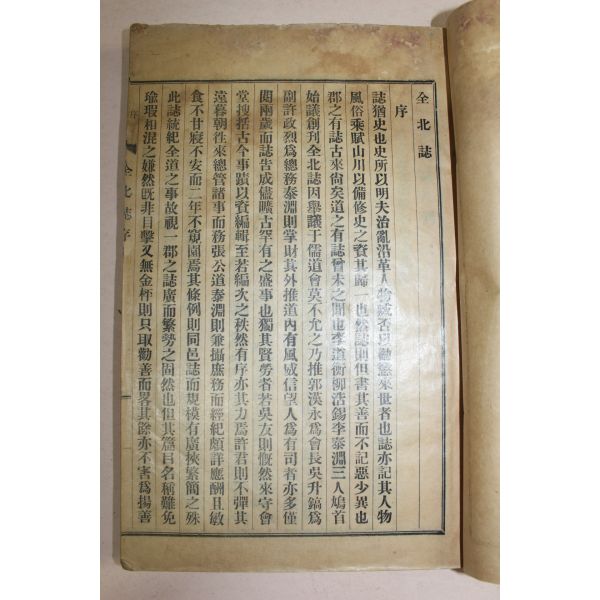 全北誌
序
誌猶史也史所以明夫治亂沿革人物臧否以勸懲來世者也誌亦記其人物
風俗乘賦山川以備修史之資其歸一也然誌則但書其善而不記惡少異也
郡之有誌古來尙矣道之有誌曾未之聞也李道衡柳浩錫李泰淵三人鳩首
始議創刊全北誌因擧議于儒道會莫不允之乃推郭漢永爲會長吳升鎬爲
副許政烈爲總務泰淵則掌財其外推道內有風威信望人爲有司者亦多僅
閱兩歲而誌告成儘曠古罕有之盛事也獨其賢勞者若吳友則慨然來守會
堂搜括古今事蹟以資編輯至若編次之秩然有序亦其力焉許君則不彈其
遠暮朝徃來總管諸事而務張公道泰淵則兼攝庶務而經紀頗詳應酬且敏
食不甘寢不安而二年不窺園焉其條例則同邑誌而規模有廣狹繁簡之殊
此誌統紀全道之事故視一郡之誌廣而繁勢之固然也但其篇目名稱難免
瑜瑕相混之嫌然旣非目擊又無金枰則只取勸善而畧其餘亦不害爲揚善
全北誌序
序